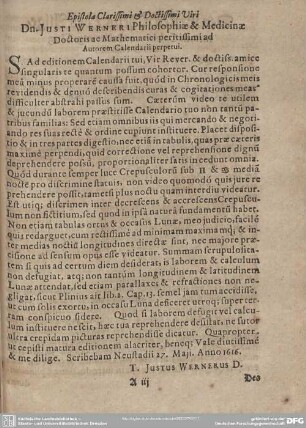 Epistola Clarissimi & Doctissimi Viri
Dn. JUSTI WERNERI Philosophiæ & Medicinæ
Doctoris ac Mathematici peritissimi ad
Autorem Calendarii perpetui.
SAd editionem Calendarii tui, Vir Rever. & doctiss. amice
singularis te quantum possum cohortor. Cur responsione
meâ minus properare causa fuit, quòd in Chronologicis meis
revidendis & denuò describendis curas & cogitationes meas
difficulter abstrahi passus sum. Cæterùm video te utilem
& jucundū laborem præstitisse Calendario tuo non tantū pa-
tribus familias: Sed etiam omnibus in qui mercando & negoti-
ando res suas rectè & ordine cupiunt instituere. Placet disposi-
tio, & in tres partes digestio, nec etiam intabulis, quæ pro cæteris
maximè perpendi, quid correctione vel reprehensione dignū
deprehendere possū, proportionaliter satis incedunt omnia.
Quòd durante semper luce Crepusculorū sub II & mediâ
nocte pro discrimine statuis, non video quomodò quis jure re
prehendere possit, tametsi plus noctu quam interdiu videatur.
Est utiq; discrimen inter decrescens & accrescens Crepuscu-
lum non fictitium, sed quod in ipsâ naturâ fundamentū habet.
Non etiam tabulas ortus & occasûs Lunæ, meo judicio, facilè
quis redarguet, cum rectissimè ad minimam maximamq; & in-
ter medias noctiū longitudines directæ sint, nec majore præ-
cisione ad sensum opus esse videatur. Summam scrupulosita-
tem si quis ad certum diem desiderat, is laborem & calculum
non defugiat, atq; non tantùm longitudinem & latitudinem
Lunæ attendat, sed etiam parallaxes & refractiones non ne-
gligat, sicut Plinius ait lib. 2. Cap. 13. semel jam tum accidisse,
ut cum solis exortu, in occasu Luna deficeret supter, utrum-
ram conspicuo sidere. Quod si laborem defugit vel calcu-
lum instituere nescit, hæc tua reprehendere desistat, ne sutor
ultra crepidam picturas reprehendisse dicatur. Quapropter,
us cepisti matura editionem accelerare, beneq; Vale diutissimè
& me dilige. Scribebam Neustadii 27. Maji. Anno 1616.
T. JUSTUS WERNERUS D.
A iij
Deo